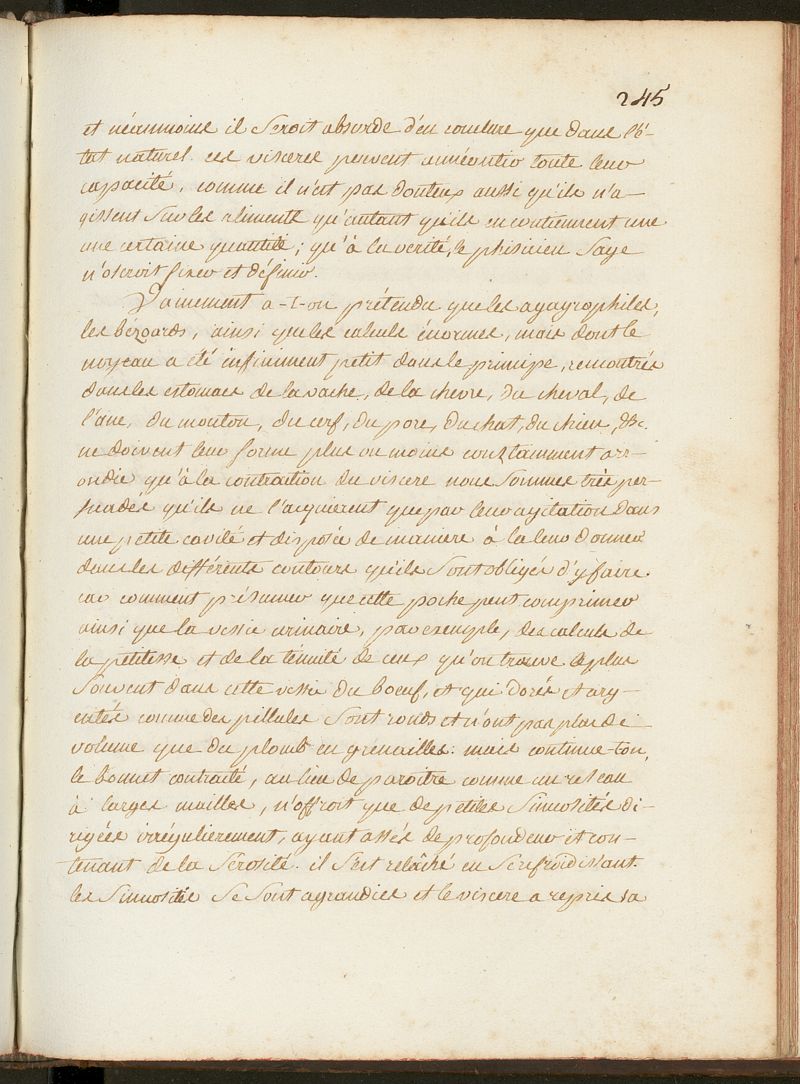 245
et néanmoins il seroit absurde d'en conclure que dans l'é-
tat naturel ces visceres peuvent anneantir toute leur
capacité, comme il n'est pas douteux aussi qu'ils n'a-
gissent sur les aliments qu'autant qu'ils en contiennent une
une certaine quantité; qu'à la verité, le phisicien sage
n'oseroit fixer et définir.
Vainement a-t-on prétendu que les agagrophiles,
les bézoards, ainsi que les calculs énormes, mais dont le
noyeau a été infiniment petit dans le principe, rencontrés
dans les estomacs de la vache, de la chevre, du cheval, de
l'ane, du mouton, du cerf, du porc, du chat, du chien, &c.
ne doivent leur forme plus ou moins constamment arr-
ondie qu'à la contraction du viscere nous sommes très per-
suadés qu'ils ne l'acquierent que par leur agitation dans
une petite cavité et disposée de maniere à la leur donner
dans les différents contours qu'ils sont obligés d'y faire.
car comment présumer que cette poche peut comprimer
ainsi que la vessie urinaire, par exemple, des calculs de
la petitesse et de la ténuité de ceux qu'on trouve le plus
souvent dans cette vessie du boeuf, et qui dorés et arg-
entés comme des pillules sont ronds et n'ont pas plus de
volume que du plomb en grenailles: mais continue-ton,
le bonnet contracté, au lieu de paroitre comme un reseau
à larges mailles, n'offroit que de petites sinuosités di-
rigées irrégulierement, ayant assés de profondeur et con-
tenant de la sérosité. il s'est relâché en se refroidissant.
les sinuosités se sont agrandies et le viscere a repris sa